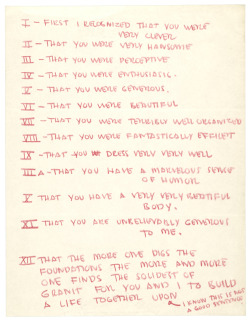 I - FIRST I RECOGNIZED THAT YOU WERE
VERY CLEVER
II - THAT YOU WERE VERY HANSOME
III - THAT YOU WERE PERCEPTIVE
IV - THAT YOU WERE ENTHUSIASTIC.
V - THAT YOU WERE GENEROUS.
VI - THAT YOU WERE BEAUTIFUL
VII - THAT YOU WERE TERRIBLY WELL ORGANIZED
VIII - THAT YOU WERE FANTASTICALLY EFFICIENT
IX - THAT YOU DRESS VERY VERY WELL
III A - THAT YOU HAVE A MARVELOUS SENSE
OF HUMOR
X THAT YOU HAVE A VERY VERY BEAUTIFUL
BODY.
XI THAT YOU ARE UNBELIEVABLY GENEROUS
TO ME.
XII THAT THE MORE ONE DIGS THE
FOUNDATIONS THE MORE AND MORE
ONE FINDS THE SOLIDEST OF
GRANIT FOR YOU AND I TO BUILD
A LIFE TOGETHER UPON
I KNOW THIS IS NOT
A GOOD SENTENCE